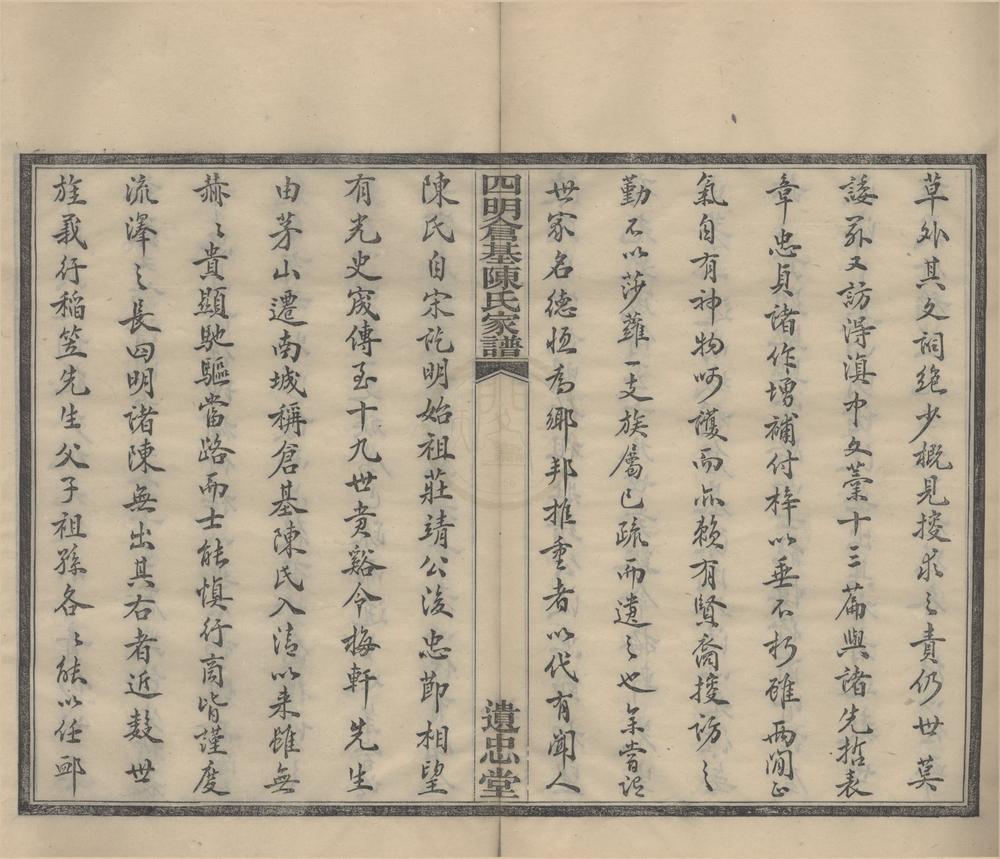 草外其文詞絶少概見搜求之責仍世莫
諉茲又訪得滇中文藁十三篇與諸先哲表
章忠貞諸作增補付梓以垂不朽雖兩間正
氣自有神物呵護而亦賴有賢裔搜訪之
勤不以莎蘿一支族屬已疏而遺之也余嘗謂
世家名德恒為鄉邦推重者以代有聞人
四明倉基陳氏家譜
遺忠堂
陳氏自宋訖明始祖莊靖公後忠節相望
有光史宬傳至十九世貴谿令梅軒先生
由茅山遷南城稱倉基陳氏入清以來雖無
赫〻貴顯馳驅當路而士能慎行商皆謹度
流澤之長四明諸陳無出其右者近數世
旌義行稻笠先生父子祖孫各〻能以任卹